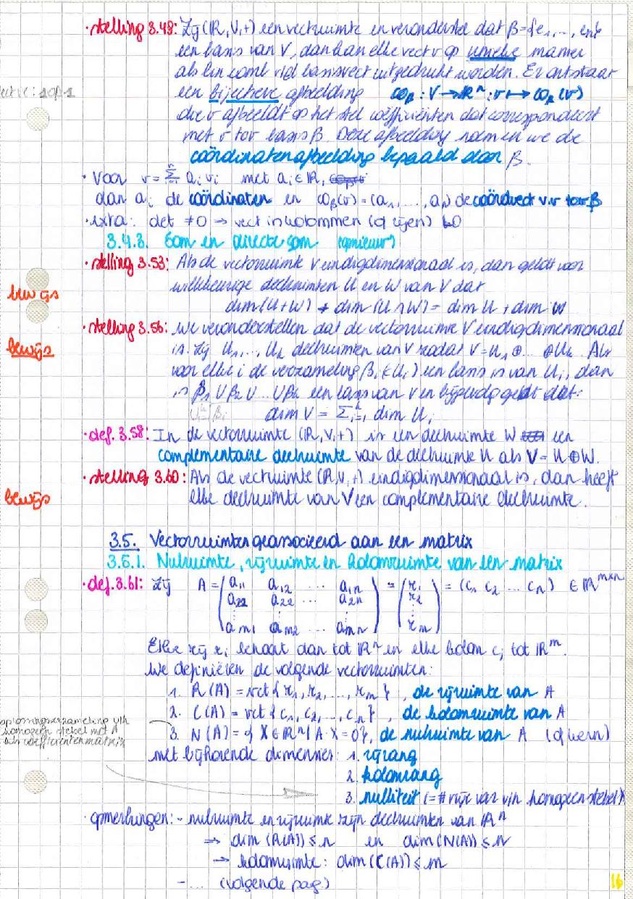 · stelling 3.48: Zij (ℝ,V,+) een vectruimte en veronderstel dat β={e₁,..., eₙ}
een basis van V, dan kan elke vect v op unieke manier
als lin comb v/d basisvect uitgedrukt worden. Er ontstaat
een bijectieve afbeelding co_β : V → ℝⁿ : v ↦ co_β(v)
die v afbeeldt op het stel coëfficiënten dat correspondeert
met v tov basis β. Deze afbeelding noemen we de
coördinatenafbeelding bepaald door β.
· Voor v = Σ aᵢ vᵢ met aᵢ ∈ ℝ,
dan aᵢ de coördinaten en co_β(v) = (a₁, ..., aₙ) de coördvect v.v tov β
· extra: det ≠ 0 → vect in kolommen (of rijen) LO
3.4.3. Som en directe som (opnieuw)
bewijs
· stelling 3.53: Als de vectorruimte V eindigdimensionaal is, dan geldt voor
willekeurige deelruimten U en W van V dat
dim(U+W) + dim(U∩W) = dim U + dim W
bewijs
· stelling 3.56: We veronderstellen dat de vectorruimte V eindigdimensionaal
is. Zij U₁,..., Uₖ deelruimten van V zodat V = U₁ ⊕ ... ⊕ Uₖ. Als
voor elke i de verzameling βᵢ (⊂Uᵢ) een basis is van Uᵢ, dan
is β₁ ∪ β₂ ∪ ... ∪ βₖ een basis van V en bijgevolg geldt dat:
dim V = Σ dim Uᵢ
· def. 3.58: In de vectorruimte (ℝ,V,+) is een deelruimte W een
complementaire deelruimte van de deelruimte U als V = U ⊕ W.
bewijs
· stelling 3.60: Als de vectruimte (ℝ,V,+) eindigdimensionaal is, dan heeft
elke deelruimte van V een complementaire deelruimte.
3.5. Vectorruimten geassocieerd aan een matrix
3.5.1. Nulruimte, rijruimte en kolomruimte van een matrix
· def. 3.61: Zij A = (a₁₁ a₁₂ ... a₁ₙ
a₂₂ a₂₂ ... a₂ₙ
⋮
aₘ₁ aₘ₂ ... aₘₙ) = (r₁ r₂ ⋮ rₘ) = (c₁ c₂ ... cₙ) ∈ ℝᵐˣⁿ
Elke rij rᵢ behoort dan tot ℝⁿ en elke kolom cⱼ tot ℝᵐ.
We definiëren de volgende vectorruimten:
1. R(A) = vct{r₁, r₂, ..., rₘ}, de rijruimte van A
2. C(A) = vct{c₁, c₂, ..., cₙ}, de kolomruimte van A
3. N(A) = {X ∈ ℝⁿ | A·X = 0}, de nulruimte van A (of kern)
oplossingsverzameling v/h
homogeen stelsel met A
als coëfficiëntenmatrix
met bijhorende dimensies: 1. rijrang
2. kolomrang
3. nulliteit (= # vrije var v/h homogeen stelsel)
· opmerkingen: - nulruimte en rijruimte zijn deelruimten van ℝⁿ
⇒ dim(R(A)) ≤ n en dim(N(A)) ≤ n
→ kolomruimte: dim(C(A)) ≤ m
- ... (volgende pag)
16